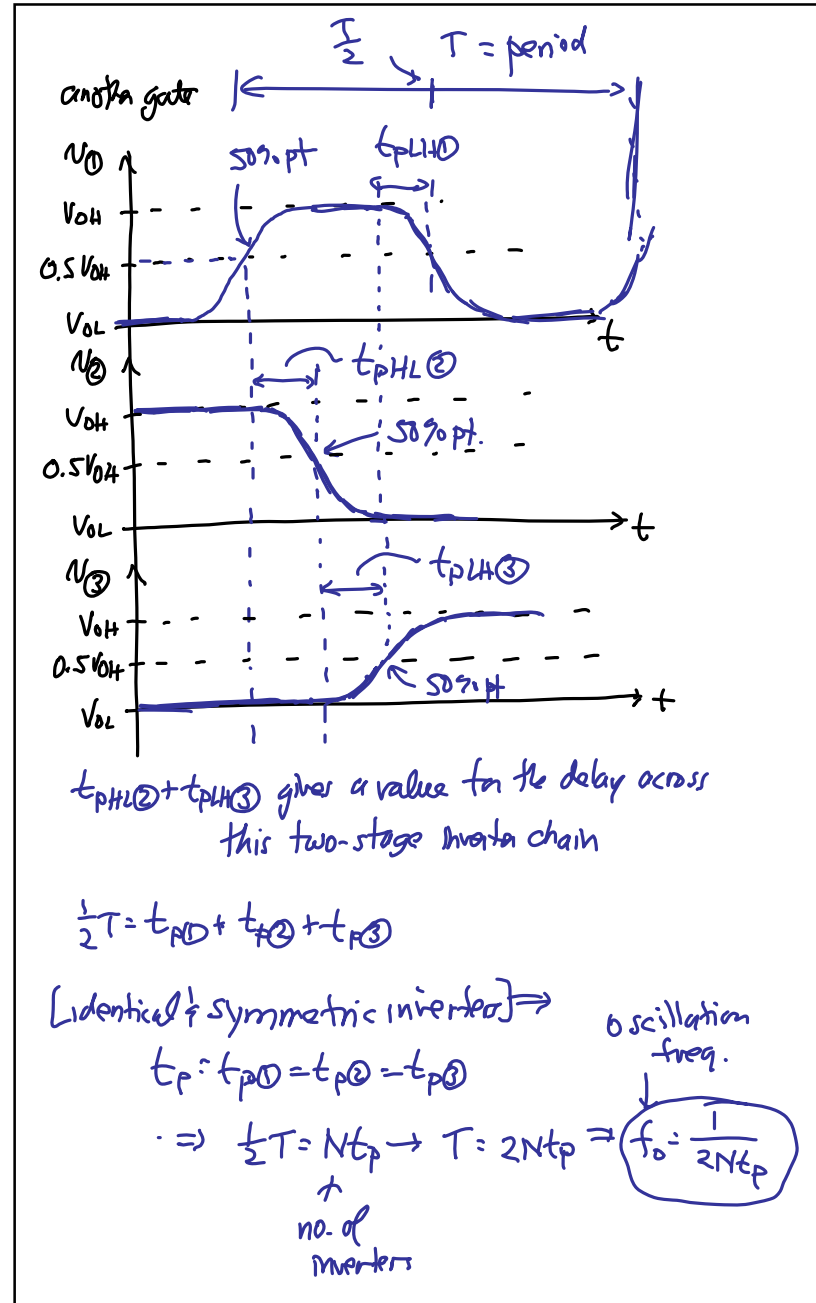 T/2 T = period
another gate
50% pt tpLH①
V①
VOH
0.5VOH
VOL
t
V② tpHL②
VOH
50% pt.
0.5VOH
VOL
t
V③ tpLH③
VOH
0.5VOH
50% pt
VOL
t
tpHL②+tpLH③ gives a value for the delay across
this two-stage inverter chain
½T = tp① + tp② + tp③
[identical & symmetric inverters] ⇒
oscillation
freq.
tp = tp① = tp② = tp③
⇒ ½T = Ntp → T = 2Ntp ⇒ fo = 1/2Ntp
no. of
inverters